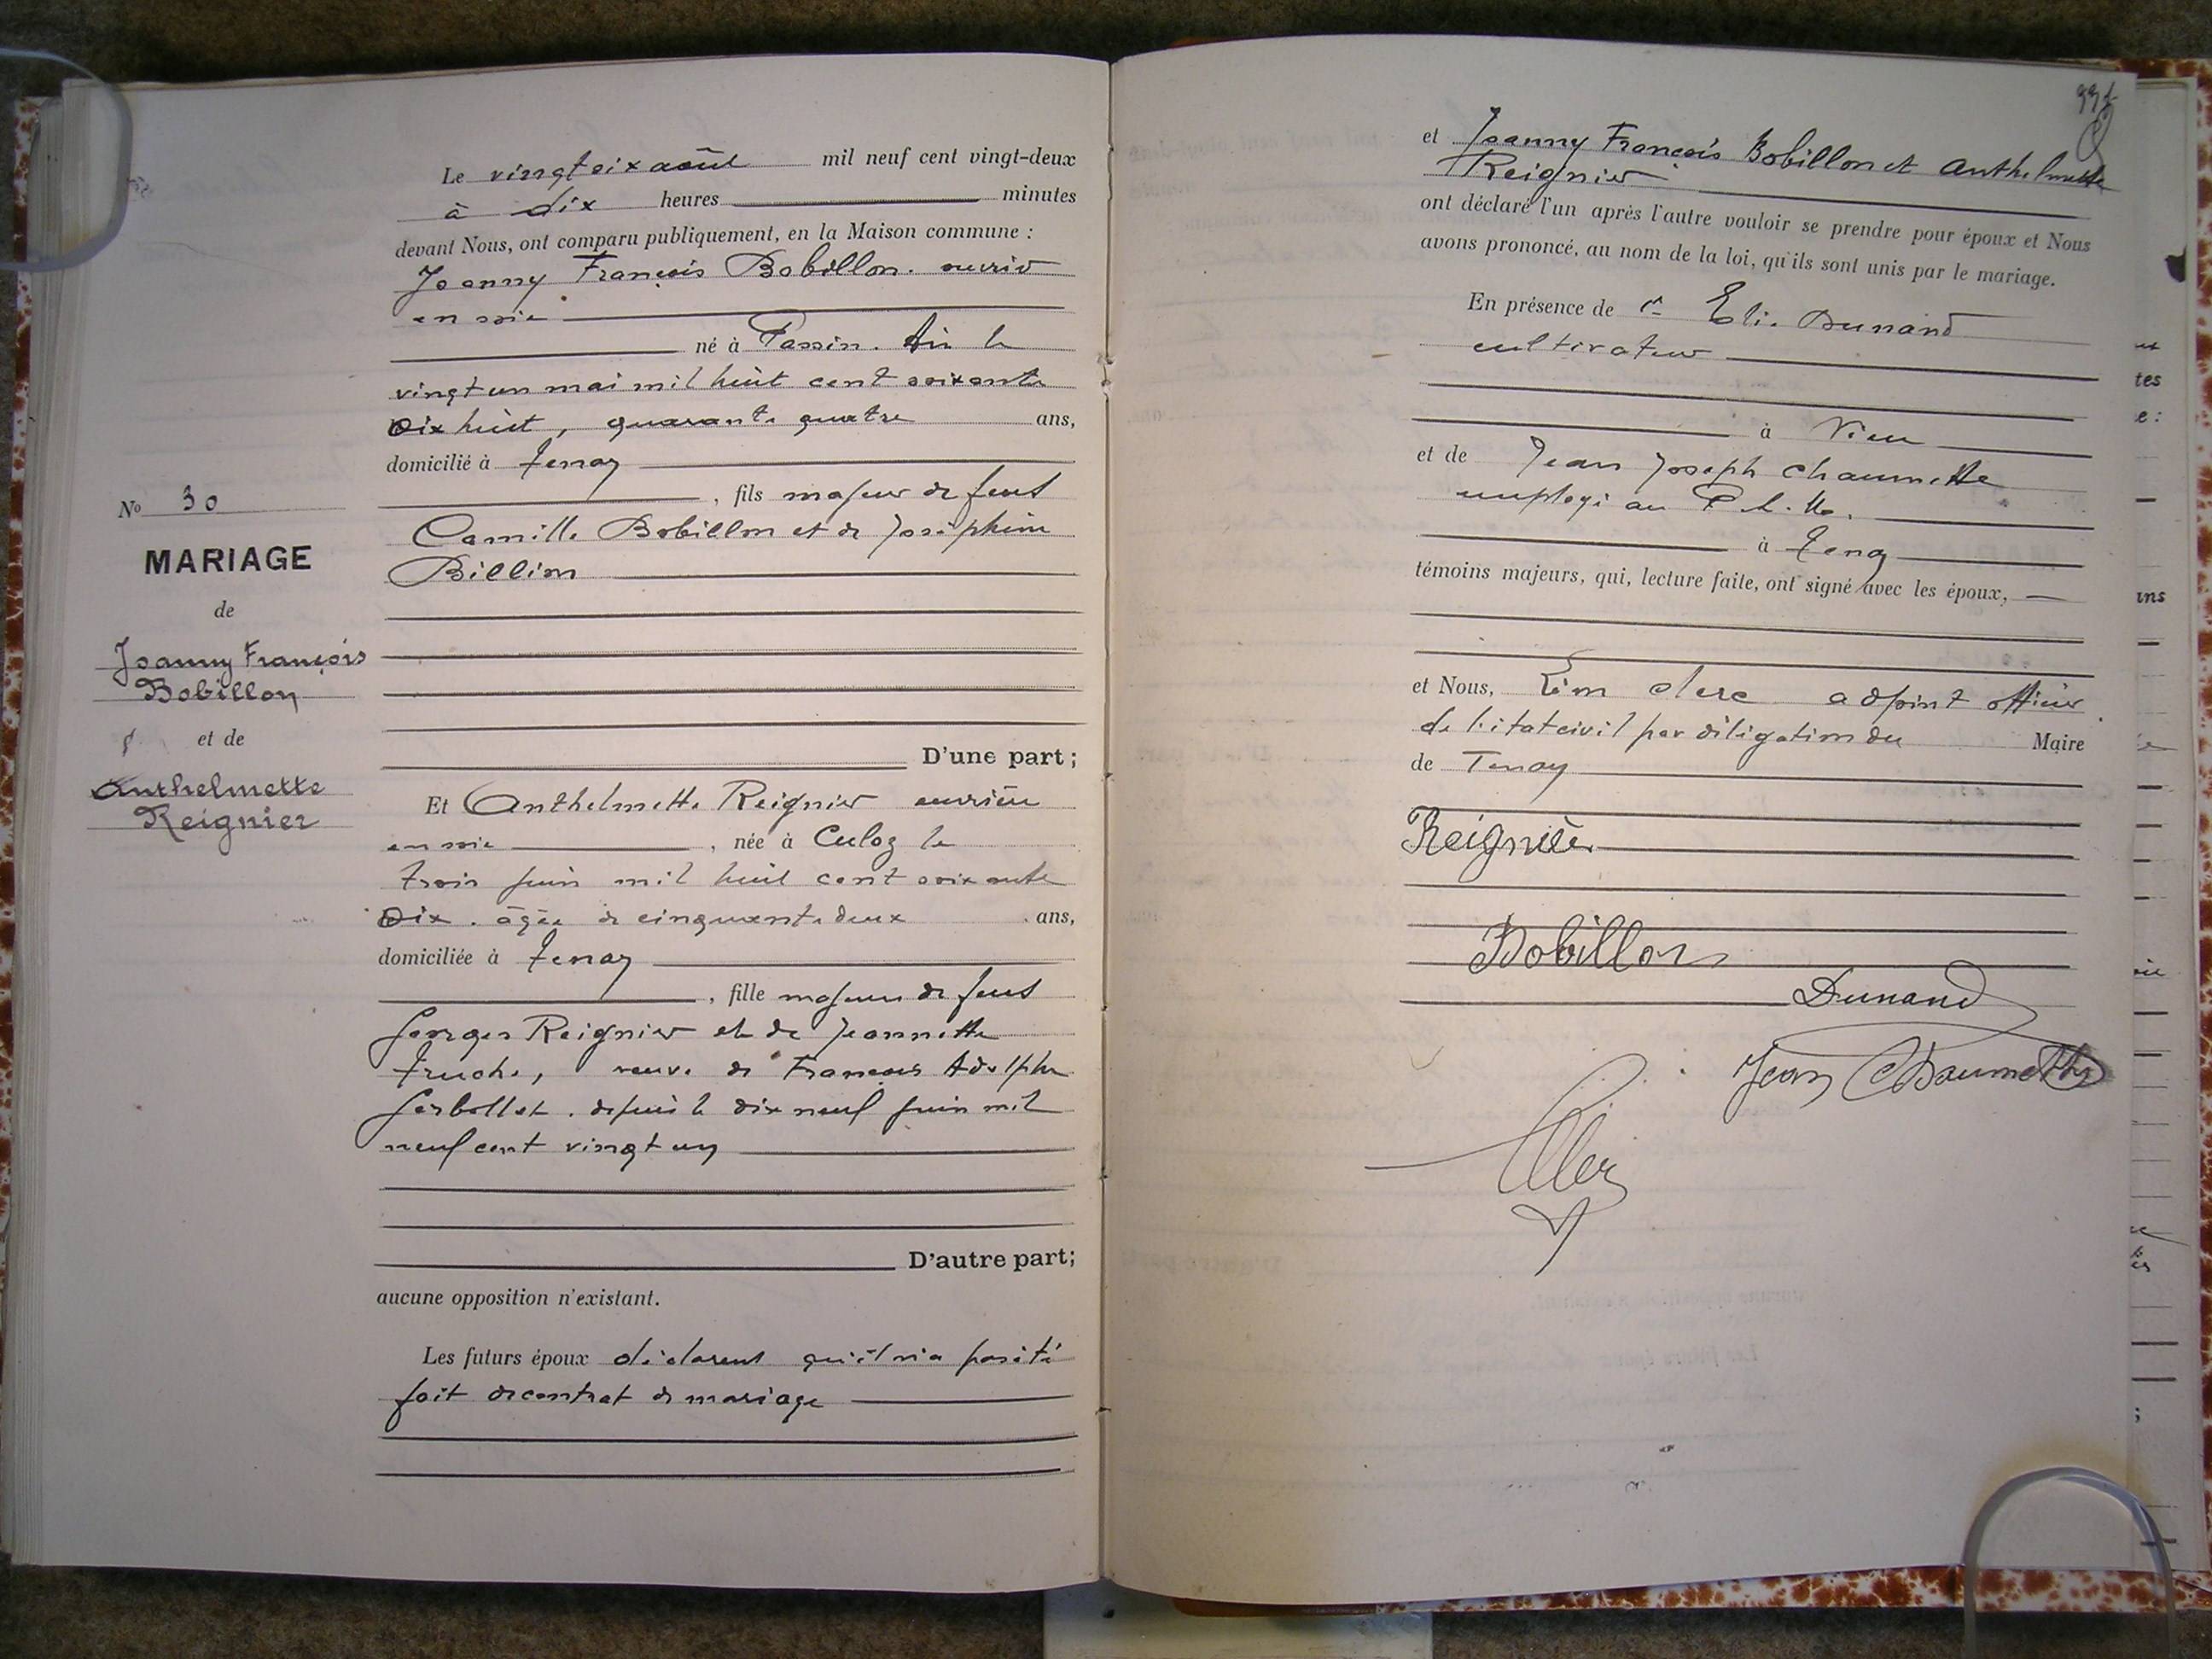 Le vingt six août mil neuf cent vingt-deux
à dix heures minutes
devant Nous, ont comparu publiquement, en la Maison commune :
Joanny François Bobillon. ouvrier
en soie
né à Passin. Ain le
vingt un mai mil huit cent soixante
dix huit, quarante quatre ans,
domicilié à Tenay
, fils majeur de feus
Camille Bobillon et de Joséphine
Billion
D'une part ;
No 30
MARIAGE
de
Joanny François
Bobillon
et de
Anthelmette
Reignier
Et Anthelmette Reignier ouvrière
en soie , née à Culoz le
trois juin mil huit cent soixante
dix. âgée de cinquante deux ans,
domiciliée à Tenay
, fille majeure de feus
Georges Reignier et de Jeannette
Truche, veuve de François Adolphe
Gerbollet. depuis le dix neuf juin mil
neuf cent vingt un
D'autre part;
aucune opposition n'existant.
Les futurs époux déclarent qu'il n'a pas été
fait de contrat de mariage
et Joanny François Bobillon et Anthelmette
Reignier
ont déclaré l'un après l'autre vouloir se prendre pour époux et Nous
avons prononcé, au nom de la loi, qu'ils sont unis par le mariage.
En présence de Elie Dunand
cultivateur
à Vieu
et de Jean Joseph Chaumette
employé au P. L. M.
à Tenay
témoins majeurs, qui, lecture faite, ont signé avec les époux,
et Nous, Léon Clerc adjoint officier
de l'état civil par délégation du Maire
de Tenay
Reignier
Bobillon
Dunand
Jean Chaumette